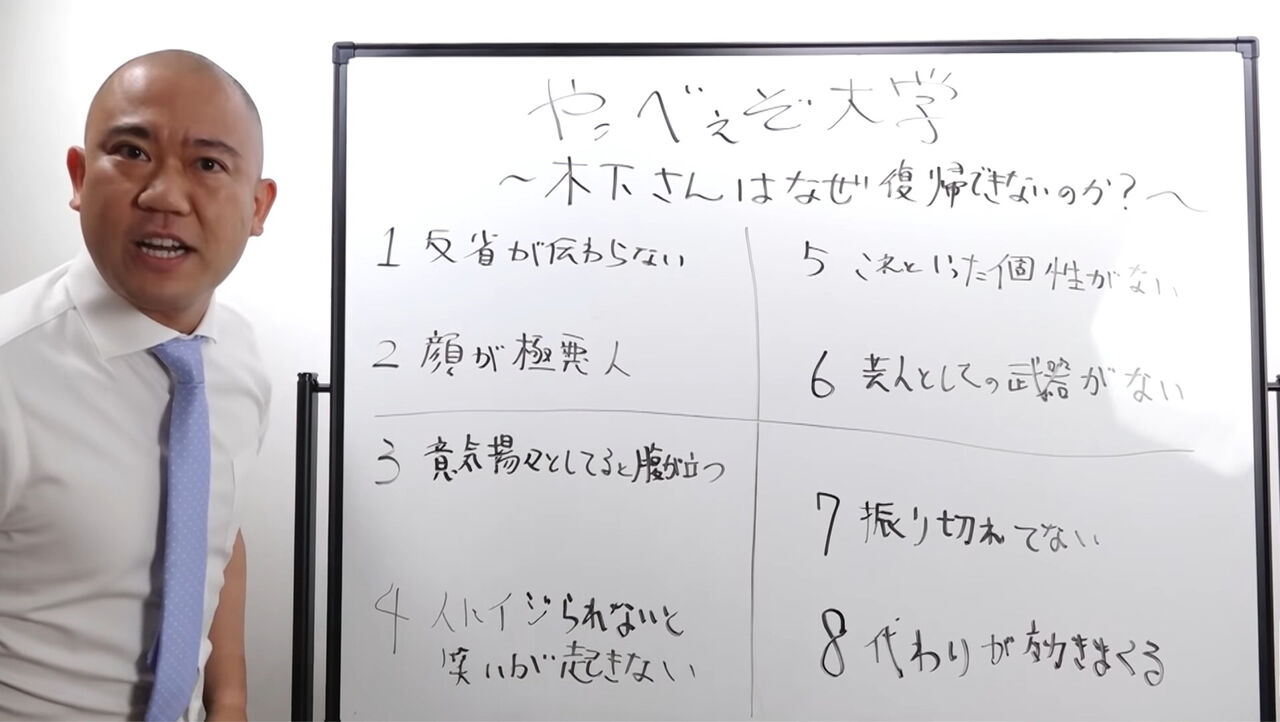 やっべぇぞ大学
～木下さんはなぜ復帰できないのか?～
1 反省が伝わらない
2 顔が極悪人
3 意気揚々としてると腹が立つ
4 人にイジられないと
笑いが起きない
5 これといった個性がない
6 芸人としての武器がない
7 振り切れてない
8 代わりが効きまくる